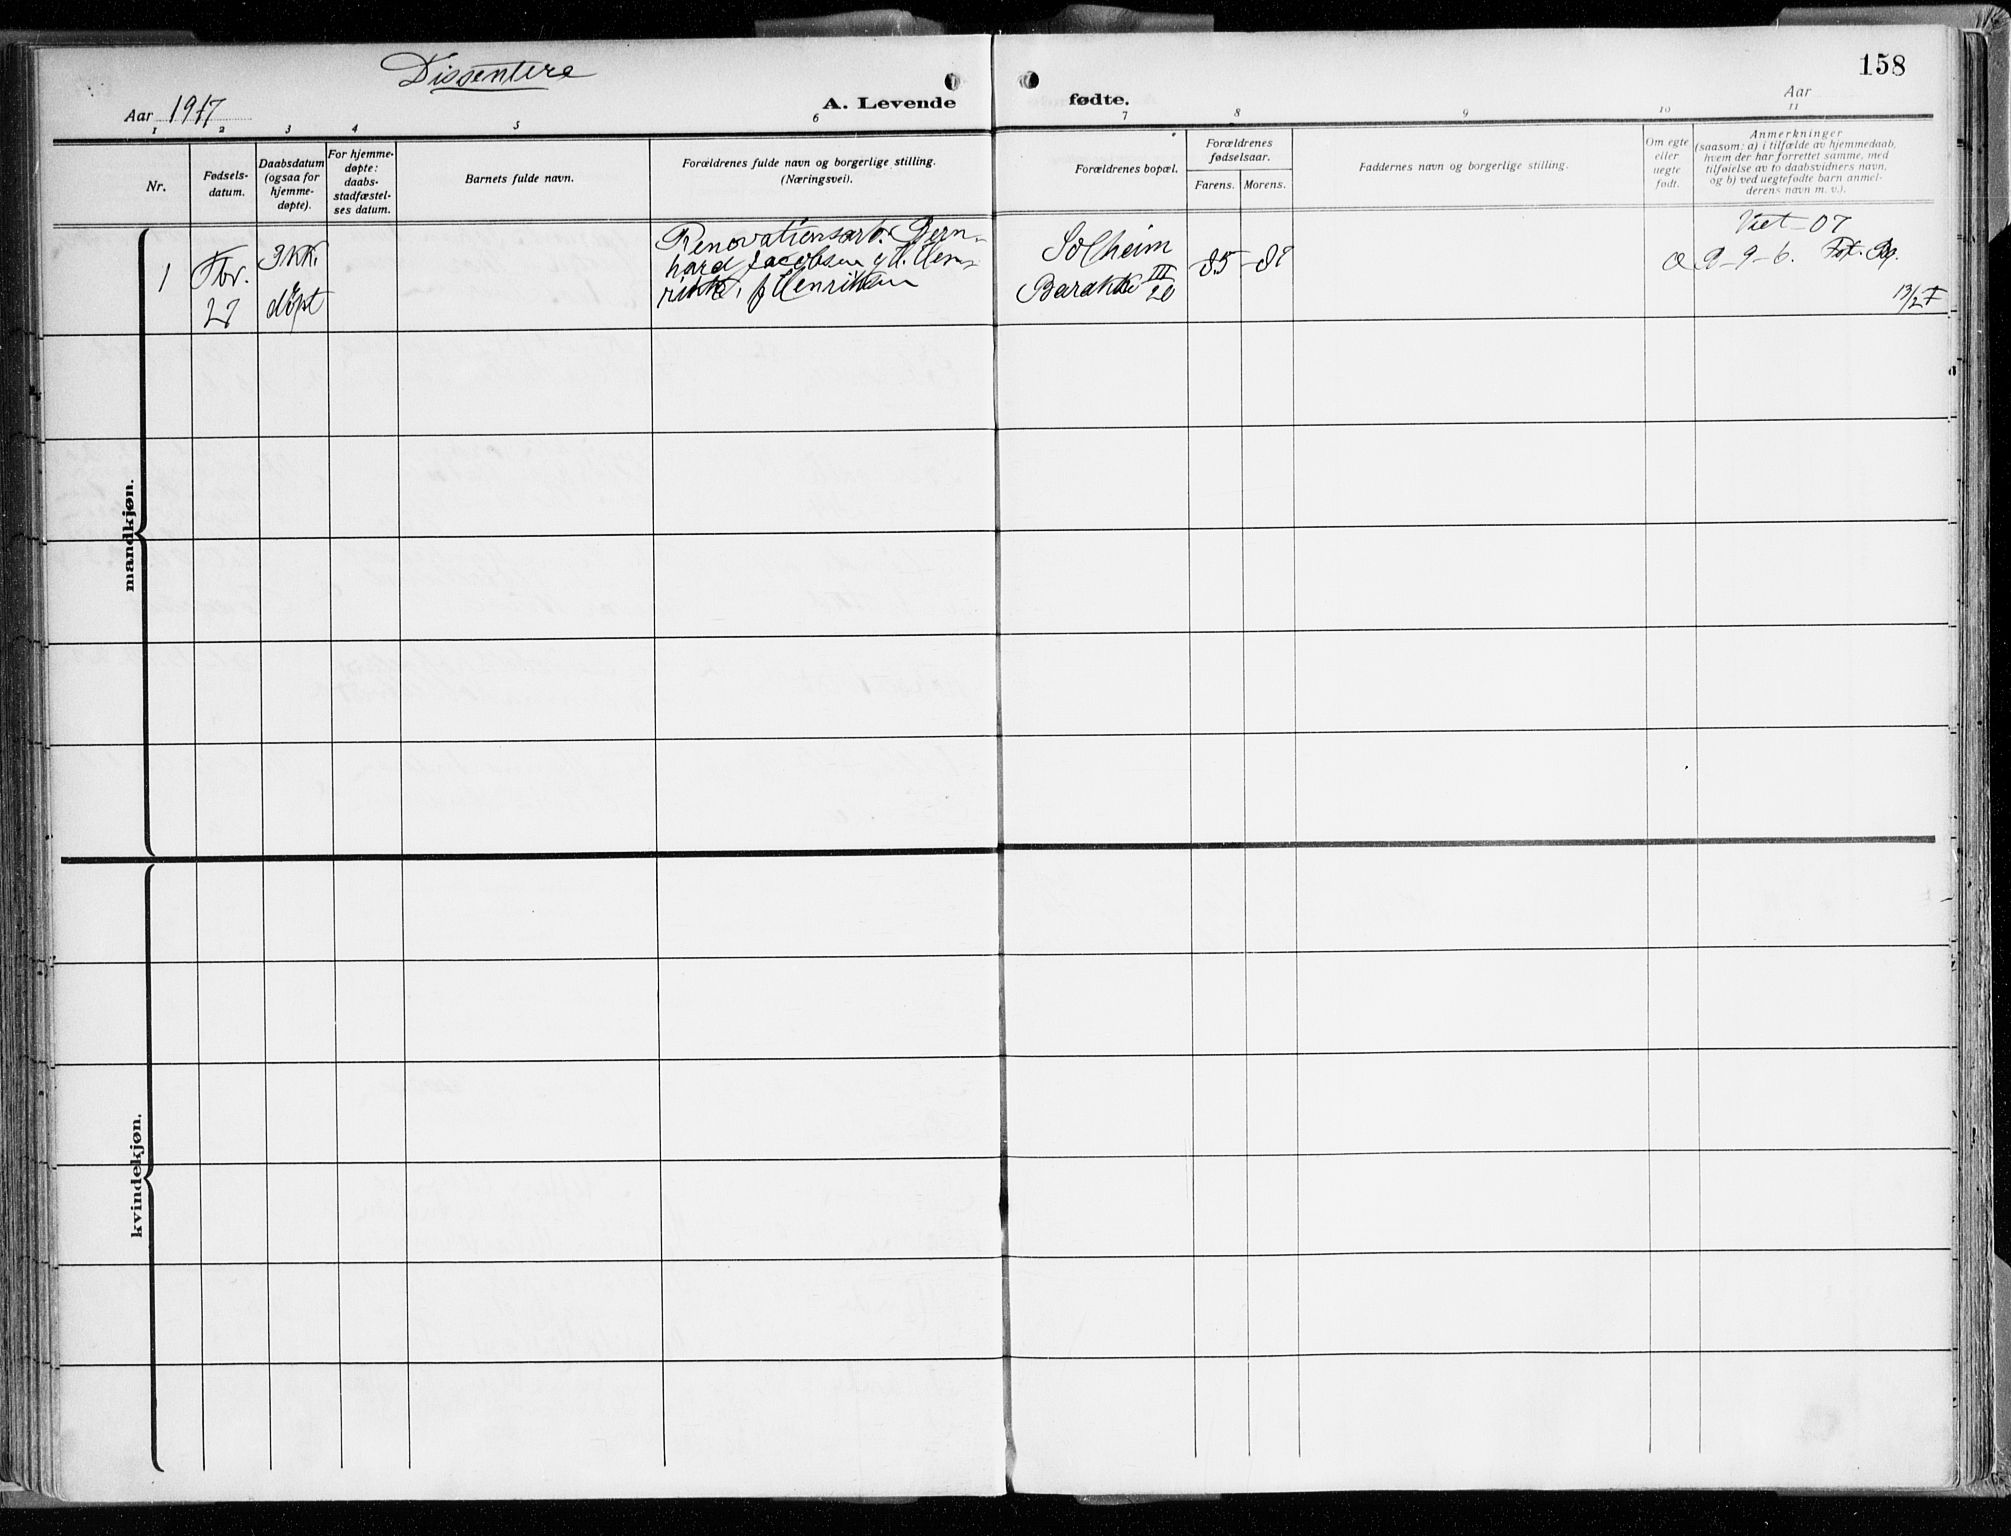 Dissentere
158
Aar 1917
A. Levende
fødte.
Aar
1 2 3 4 5 6 7 8 9 10 11
Nr.
Fødsels-
datum.
Daabsdatum
(ogsaa for
hjemme-
døpte).
For hjemme-
døpte:
daabs-
stadfæstel-
ses datum.
Barnets fulde navn.
Forældrenes fulde navn og borgerlige stilling.
(Næringsvei).
Forældrenes bopæl.
Forældrenes
fødselsaar.
Farens. Morens.
Faddernes navn og borgerlige stilling.
Om egte
eller
uegte
født.
Anmerkninger
(saasom: a) i tilfælde av hjemmedaab,
hvem der har forrettet samme, med
tilføielse av to daabsvidners navn,
og b) ved uegtefødte barn anmel-
derens navn m. v.).
mandkjøn.
1
Fbr.
27
Ikke
døpt
Renovationsarb. Bern-
hard Jacobsen og H. Hen-
rikke, f Henriksen
Solheim
Barakke III/20
85
89
Viet 07
9-9-6.
13/2
kvindekjøn.